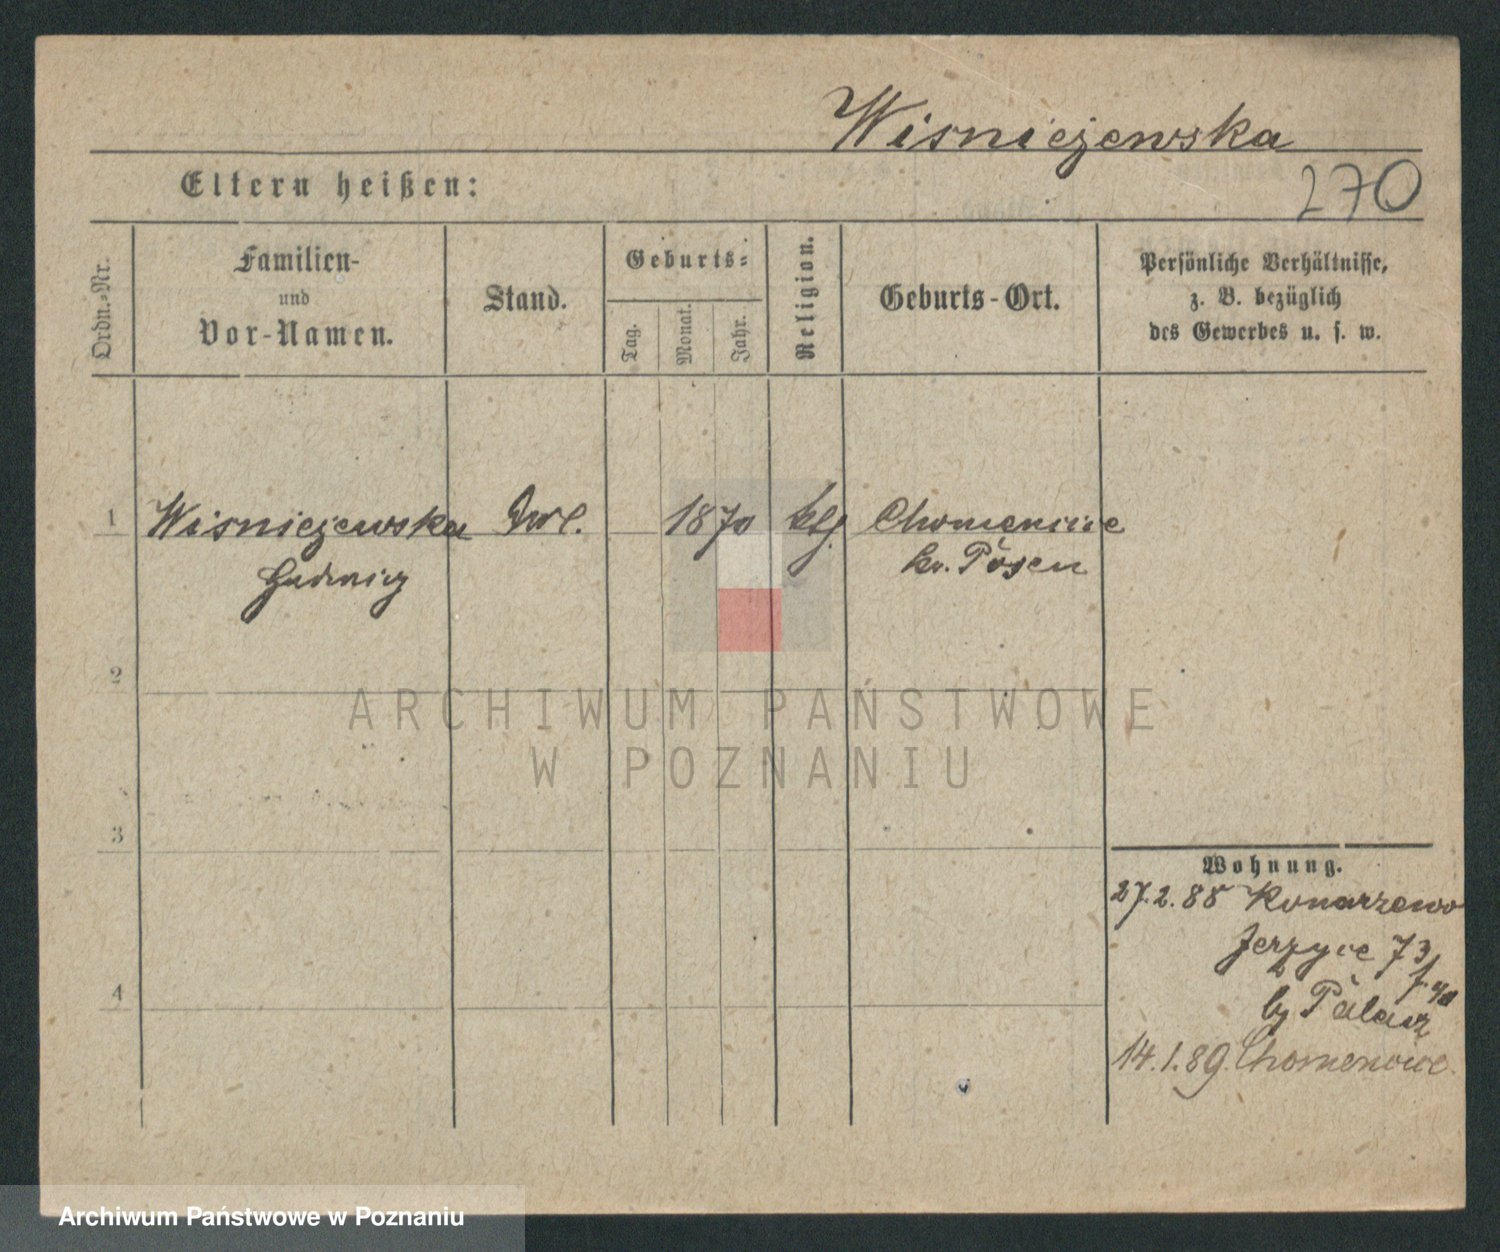 Wisniejewska
270
Eltern heißen:
Ordn.-Nr.
Familien-
und
Vor-Namen.
Stand.
Geburts-
Tag.
Monat.
Jahr.
Religion.
Geburts-Ort.
Persönliche Verhältnisse,
z. B. bezüglich
des Gewerbes u. s. w.
1 Wisniejewska 1870 Chomencice
Posen
2
3
4
Wohnung.
27.2.88 Konarzewo
Jerzyce 73
by Palacz
14.1.89. Chomencice
ARCHIWUM PAŃSTWOWE
W POZNANIU
Archiwum Państwowe w Poznaniu